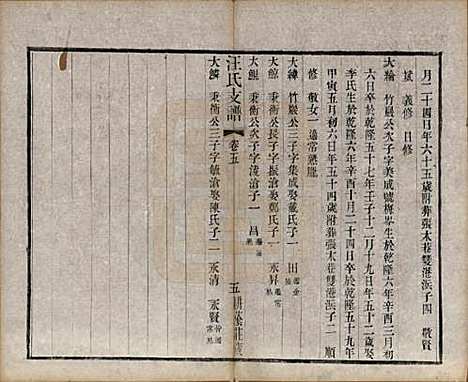 月二十四日年六十五歲附葬張木巷雙港浜子四 敬賢
斌 義修 日修
大輪 竹巖公次子字美成號梅岑生於乾隆六年辛酉三月初
六日卒於乾隆五十七年壬子十二月十九日年五十二歲娶
李氏生於乾隆六年辛酉十月二十日卒於乾隆五十九年
甲寅五月初六日年五十四歲附葬雙港浜子二 順
修 敬女一 適常熟龐
大緯 竹巖公三子字集成娶戴氏子一 田
大鯨 秉衛公長子字振滄娶鄭氏子一 永昇
大鯤 秉衛公次子字淩滄子一 昌
汪氏支譜 卷五 五 耕蔭莊
大鱗 秉衛公三子字敏滄娶陳氏子二 永清 永賢